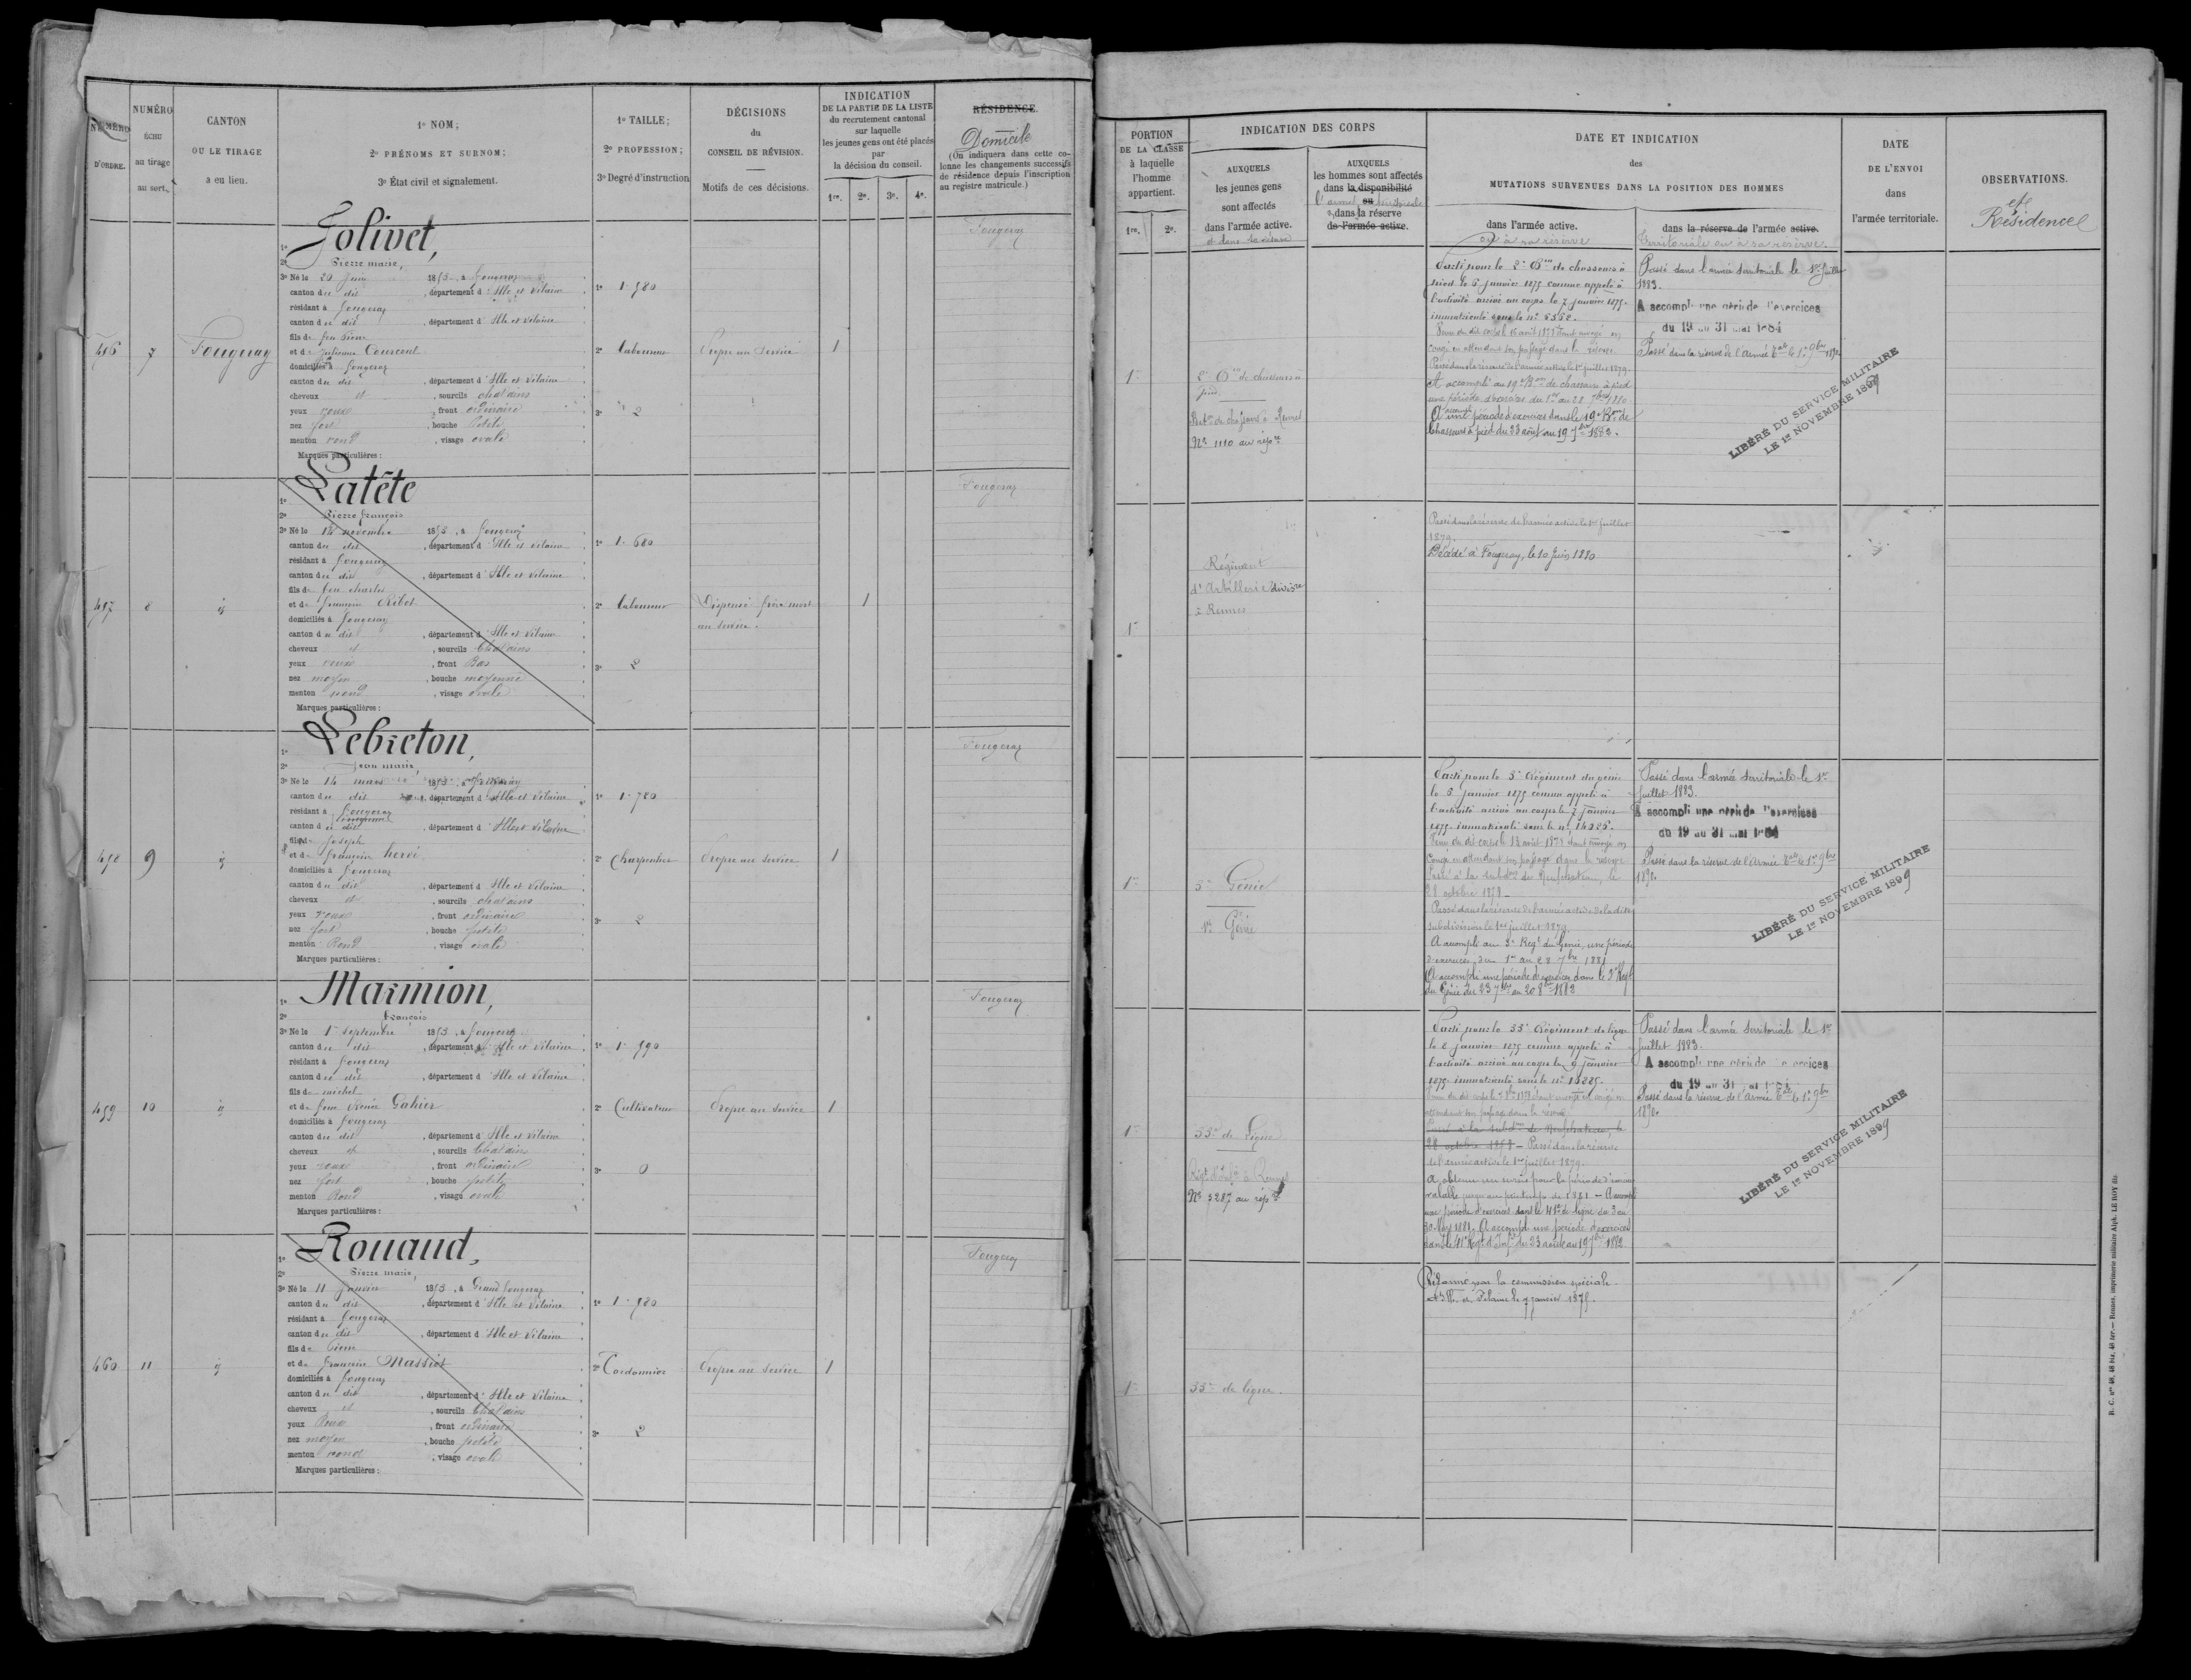 NUMÉRO
D'ORDRE.
NUMÉRO
ÉCHU
au tirage
au sort.
CANTON
OU LE TIRAGE
a eu lieu.
1º NOM;
2º PRÉNOMS ET SURNOM;
3º État civil et signalement.
1º TAILLE;
2º PROFESSION;
3º Degré d'instruction
DÉCISIONS
du
CONSEIL DE RÉVISION.
Motifs de ces décisions.
INDICATION
DE LA PARTIE DE LA LISTE
du recrutement cantonal
sur laquelle
les jeunes gens ont été placés
par
la décision du conseil.
1re. 2e. 3e. 4e.
RÉSIDENCE.
Domicile
(On indiquera dans cette co-
lonne les changements successifs
de résidence depuis l'inscription
au registre matricule.)
456
7
Fougeray
1º Jolivet,
2º Pierre marie,
3º Né le 20 Juin 1853, à fougeray
canton du dit, département d'Ille et Vilaine
résidant à fougeray
canton du dit, département d'Ille et Vilaine
fils de feu Pierre
et de Julienne Courcont
domiciliés à fougeray
canton du dit, département d'Ille et Vilaine
cheveux et, sourcils chatains
yeux roux, front ordinaire
nez fort, bouche Petite
menton rond, visage ovale
Marques particulières:
1º 1.580
2º laboureur
3º 2
Propre au Service
1
Fougeray
457
8
id
1º Latête
2º Pierre françois
3º Né le 14 novembre 1853, à fougeray
canton du dit, département d'Ille et Vilaine
résidant à fougeray
canton du dit, département d'Ille et Vilaine
fils de feu charles
et de françoise Ribot
domiciliés à fougeray
canton du dit, département d'Ille et Vilaine
cheveux et, sourcils Chatains
yeux roux, front Bas
nez moyen, bouche moyenne
menton rond, visage ovale
Marques particulières:
1º 1.680
2º laboureur
3º 2
Dispensé frère mort
au service.
1
Fougeray
458
9
id
1º Lebreton,
2º Jean marie,
3º Né le 14 mars 1853, à fougeray
canton du dit, département d'Ille et Vilaine
résidant à fougeray
canton du dit, département d'Ille et Vilaine
fils de Joseph
et de françoise hervé
domiciliés à fougeray
canton du dit, département d'Ille et Vilaine
cheveux et, sourcils chatains
yeux roux, front ordinaire
nez fort, bouche petite
menton Rond, visage ovale
Marques particulières:
1º 1.780
2º Charpentier
3º 2
Propre au service
1
Fougeray
459
10
id
1º Marmion,
2º françois
3º Né le 1er Septembre 1853, à fougeray
canton du dit, département d'Ille et Vilaine
résidant à fougeray
canton du dit, département d'Ille et Vilaine
fils de michel
et de feue Renée Gahier
domiciliés à fougeray
canton du dit, département d'Ille et Vilaine
cheveux et, sourcils Chatains
yeux roux, front ordinaire
nez fort, bouche petite
menton Rond, visage ovale
Marques particulières:
1º 1.590
2º Cultivateur
3º 0
Propre au service
1
Fougeray
460
11
id
1º Rouaud,
2º Pierre marie,
3º Né le 11 Janvier 1853, à Grand fougeray
canton du dit, département d'Ille et Vilaine
résidant à fougeray
canton du dit, département d'Ille et Vilaine
fils de Pierre
et de françoise Massiot
domiciliés à fougeray
canton du dit, département d'Ille et Vilaine
cheveux et, sourcils Chatains
yeux Roux, front ordinaire
nez moyen, bouche petite
menton rond, visage ovale
Marques particulières:
1º 1.580
2º Cordonnier
3º 2
Propre au service
1
Fougeray
PORTION
DE LA CLASSE
à laquelle
l'homme
appartient.
1re. 2e.
INDICATION DES CORPS
AUXQUELS
les jeunes gens
sont affectés
dans l'armée active.
et dans sa réserve
AUXQUELS
les hommes sont affectés
dans la disponibilité
l'armée ou territoriale
dans la réserve
de l'armée active.
DATE ET INDICATION
des
MUTATIONS SURVENUES DANS LA POSITION DES HOMMES
dans l'armée active.
ou à sa réserve
dans la réserve de l'armée active.
territoriale ou à sa réserve.
DATE
DE L'ENVOI
dans
l'armée territoriale.
OBSERVATIONS.
et
Résidence
1re
2e Bon de chasseurs à
pied
Bat.on de chasseurs à Rennes
No 1110 au rép.re
Parti pour le 2e Bon de chasseurs à
pied le 5 janvier 1875 comme appelé à
l'activité arrivé au corps le 7 janvier 1875.
immatriculé sous le nº 5568.
congé en attendant son passage dans la réserve
Passé dans la réserve de l'armée active le 1er juillet 1879.
A accompli au 19e Bon de chasseurs à pied
une période d'exercices du 1er au 28 7bre 1880.
A accompli une période d'exercices dans le 19e Bon de
Chasseurs à pied du 23 août au 19 7bre 1882.
Passé dans l'armée territoriale le 1er Juillet
1883.
A accompli une période d'exercices
du 19 au 31 mai 1884
Passé dans la réserve de l'armée tale le 1er 9bre 1890
LIBÉRÉ DU SERVICE MILITAIRE
LE 1er NOVEMBRE 1899
1re
Régiment
d'Artillerie divisre
à Rennes
Passé dans la réserve de l'armée active le 1er juillet
1879.
Décédé à Fougeray, le 10 Juin 1880
1re
3e Génie
1er Génie
Parti pour le 3e Régiment du génie
le 5 janvier 1875 comme appelé à
l'activité arrivé au corps le 7 janvier
1875 immatriculé sous le nº 14985.
congé en attendant son passage dans la réserve
Passé à la subdon de Neufchateau, le
28 octobre 1878.
Passé dans la réserve de l'armée active de la dite
subdivision le 1er juillet 1879.
A accompli au 3e Regt du Génie, une période
d'exercices du 1er au 28 7bre 1881
A accompli une période d'exercices dans le 3e Regt
du Génie du 23 7bre au 20 8bre 1882
Passé dans l'armée territoriale le 1er
Juillet 1883.
A accompli une période d'exercices
du 19 au 31 mai 1884
Passé dans la réserve de l'armée tale le 1er 9bre
1890
LIBÉRÉ DU SERVICE MILITAIRE
LE 1er NOVEMBRE 1899
1re
33e de Ligne
Regt d'Infie à Rennes
No 3287 au rép.re
Parti pour le 33e Régiment de ligne
le 8 janvier 1875 comme appelé à
l'activité arrivé au corps le 9 janvier
1875 immatriculé sous le nº
attendant son passage dans la réserve.
Passé à la subdon de Neufchateau, le
28 octobre 1878 - Passé dans la réserve
de l'armée active le 1er juillet 1879.
A obtenu un sursis pour la période d'exercices
valable jusqu'au printemps de 1881 - A accompli
une période d'exercices dans le 41e de ligne du 3 au
30 1881. A accompli une période d'exercices
dans le 41e Regt d'Infie du 23 août au 19 7bre 1882
Passé dans l'armée territoriale le 1er
Juillet 1883.
A accompli une période d'exercices
du 19 au 31 mai 1884
Passé dans la réserve de l'armée tale le 1er 9bre
1890
LIBÉRÉ DU SERVICE MILITAIRE
LE 1er NOVEMBRE 1899
1re
33e de ligne.
Réformé par la commission spéciale
d'Ille et Vilaine le 7 janvier 1875.
R. C. nos 48, 48 bis, 48 ter.— Rennes, imprimerie militaire Alph. LE ROY fils